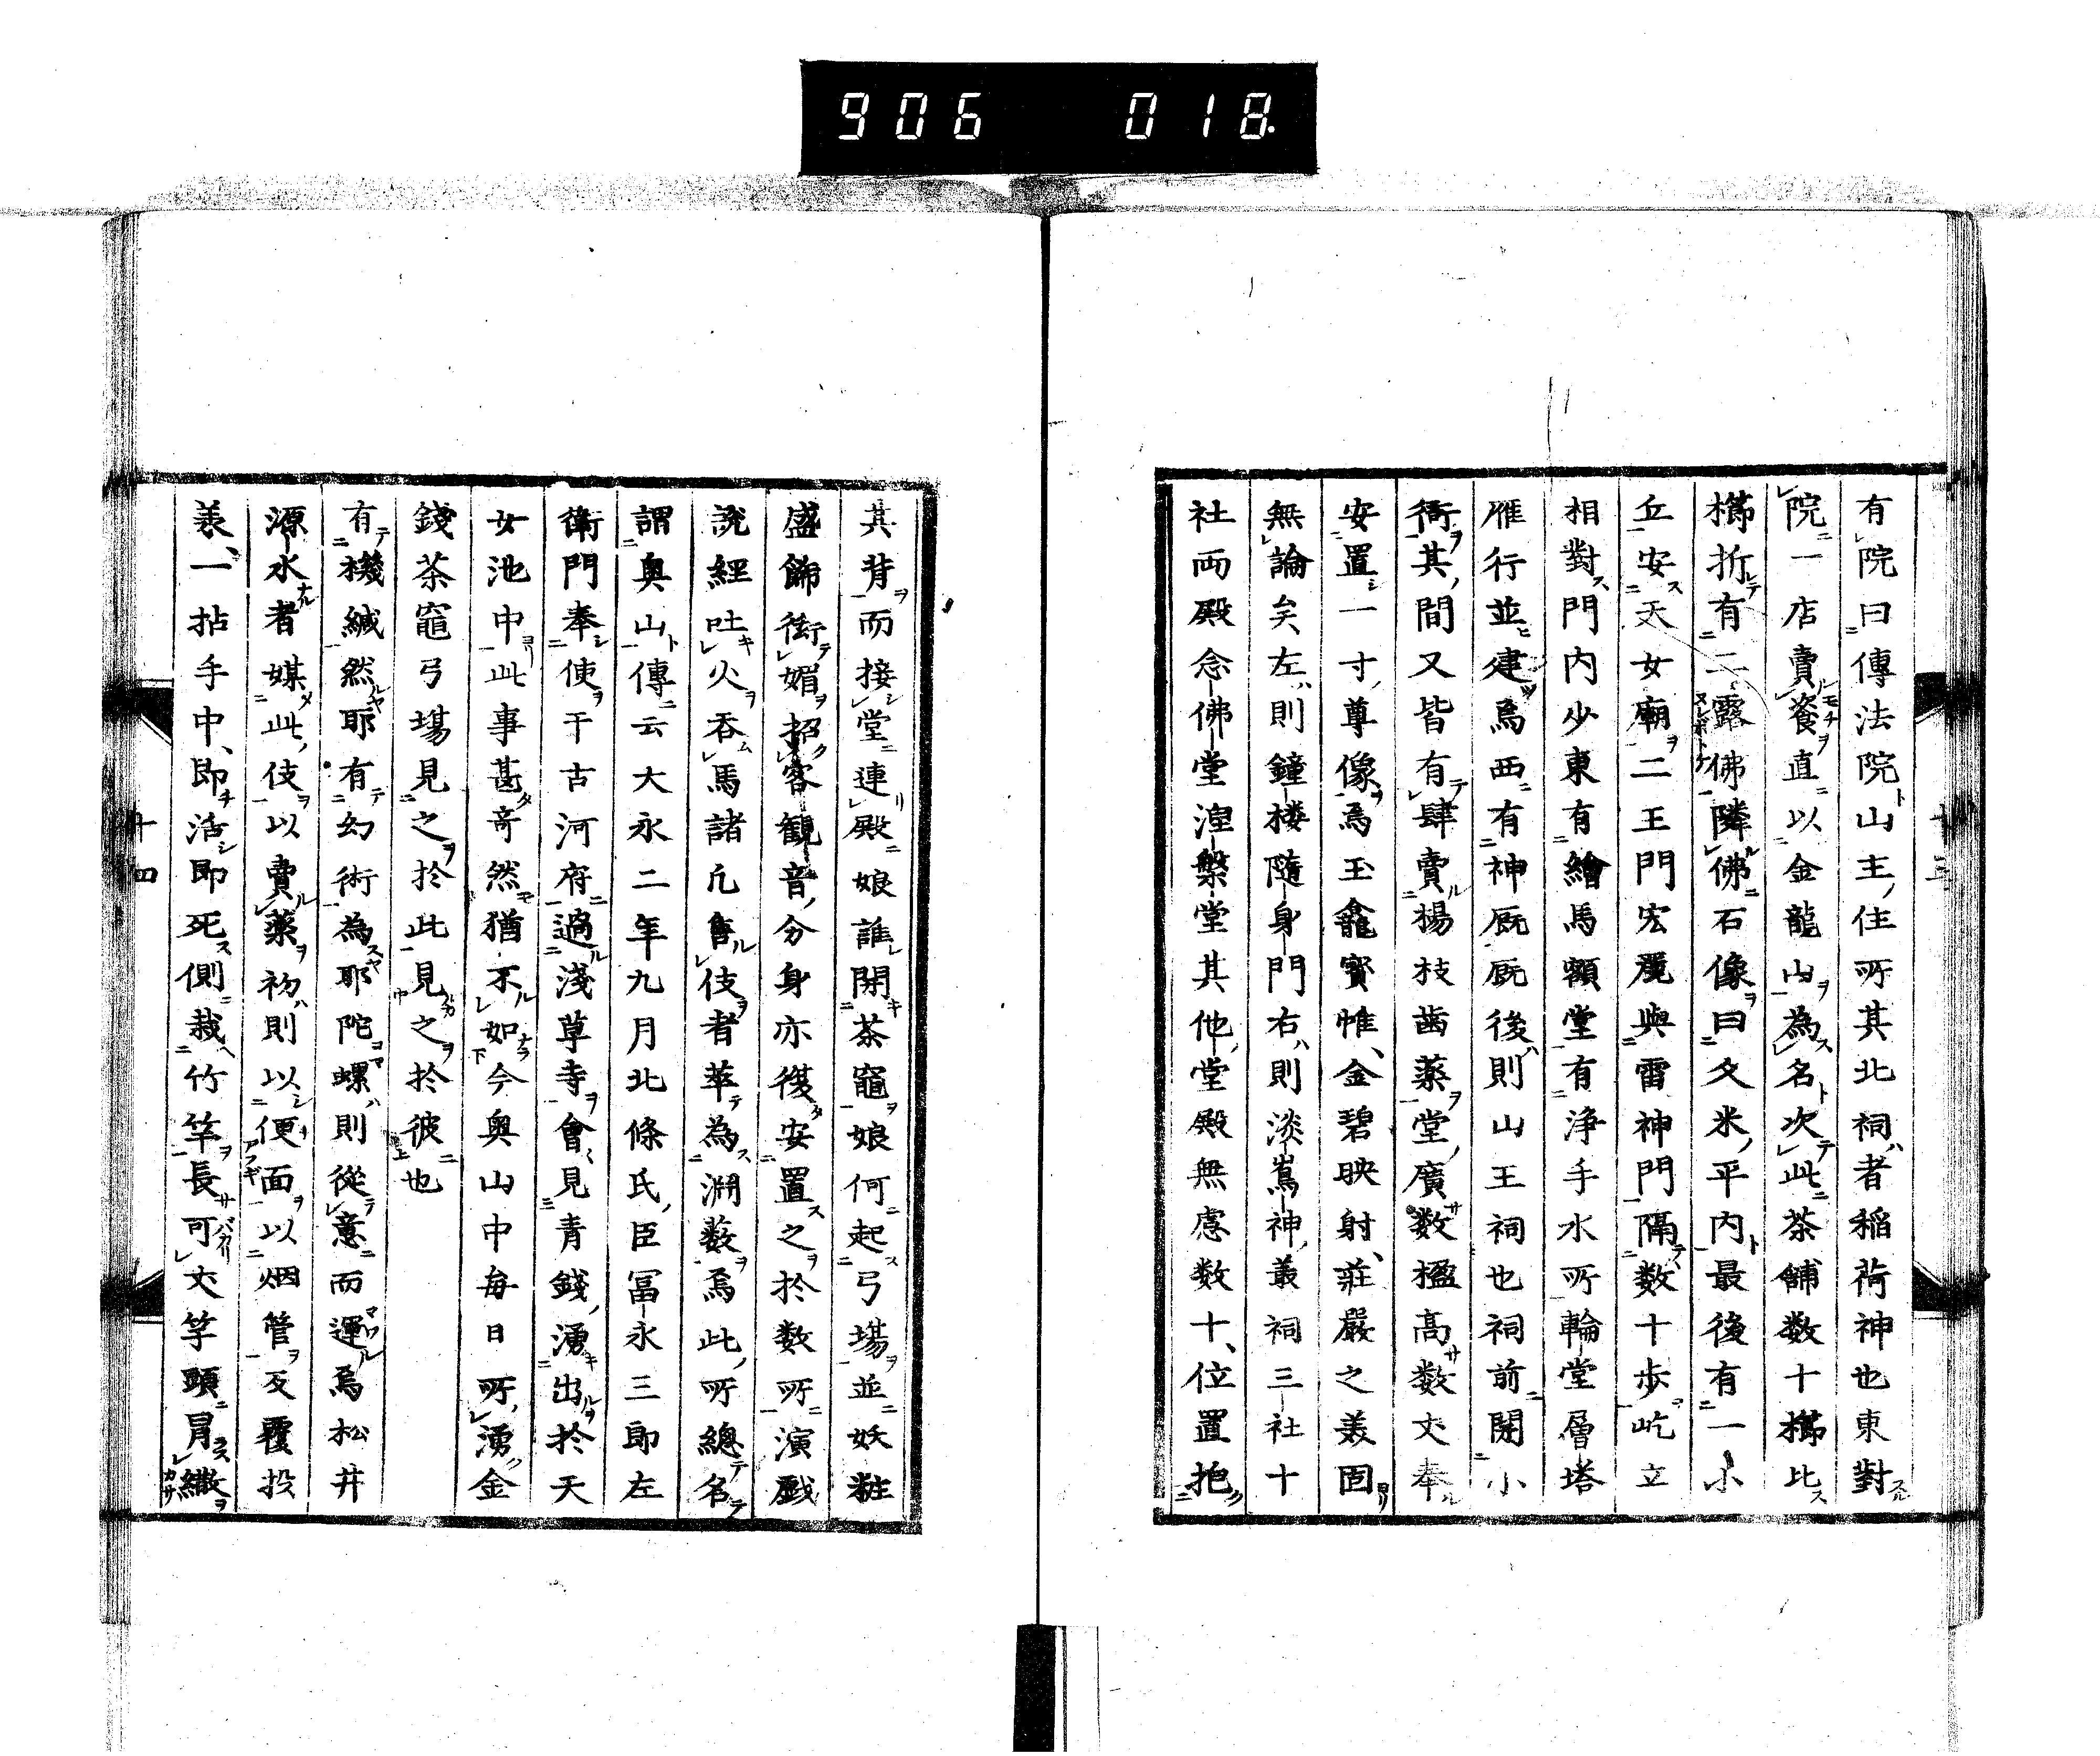 906 018
有院曰傳法院山主住所其北祠者稲荷神也東對
院一店賣餈直以金龍山為名次此茶舗数十櫛比
櫛折有二露佛隣佛石像曰久米平内最後有一小
丘安天女廟二王門宏麗與雷神門隔数十歩屹立
相對門内少東有繪馬額堂有浄手水所輪堂層塔
雁行並建焉西有神厩厩後則山王祠也祠前開小
衖其間又皆有肆賣楊枝歯薬堂廣数楹高数丈奉
安置一寸尊像為玉龕寳帷金碧映射莊嚴之美固
無論矣左則鐘楼隨身門右則淡嶌神叢祠三社十
社両殿念佛堂湼槃堂其他堂殿無慮数十位置抱
其背而接堂連殿娘誰開茶竈娘何起弓場並妖粧
盛飾衒媚招客観音分身亦復安置之於数所演戯
説經吐火呑馬諸凡售伎者萃為淵薮焉此所總名
謂奥山傳云大永二年九月北條氏臣冨永三郎左
衛門奉使于古河府過淺草寺會見青錢湧出於天
女池中此事甚奇然猶不如今奥山中毎日所湧金
錢茶竈弓場見之於此見之於彼也
有機緘然耶有幻術為耶陀螺則從意而運焉松井
源水者媒此伎以賣薬初則以便面以烟管反覆投
羨一拈手中即活即死側栽竹竿長可丈竿頭冒繖
十四